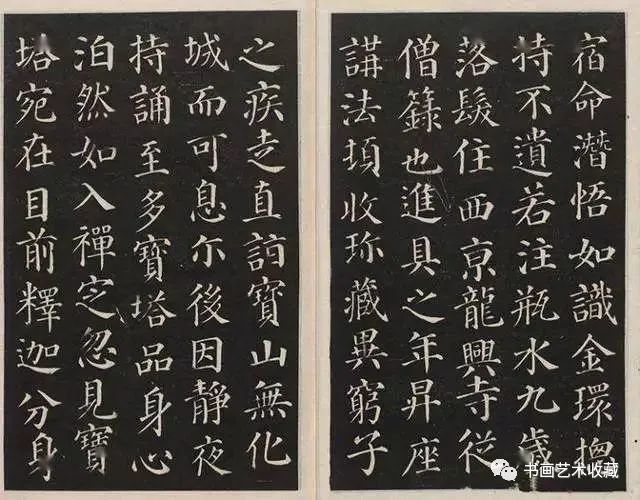 宿命潛悟如識金環揔
持不遺若注瓶水九歲
落髮住西京龍興寺從
僧籙也進具之年昇座
講法頓收珎藏異窮子
之疾走直詣寶山無化
城而可息尒後因靜夜
持誦至多寶塔品身心
泊然如入禪定忽見寶
塔宛在目前釋迦分身
书画艺术收藏